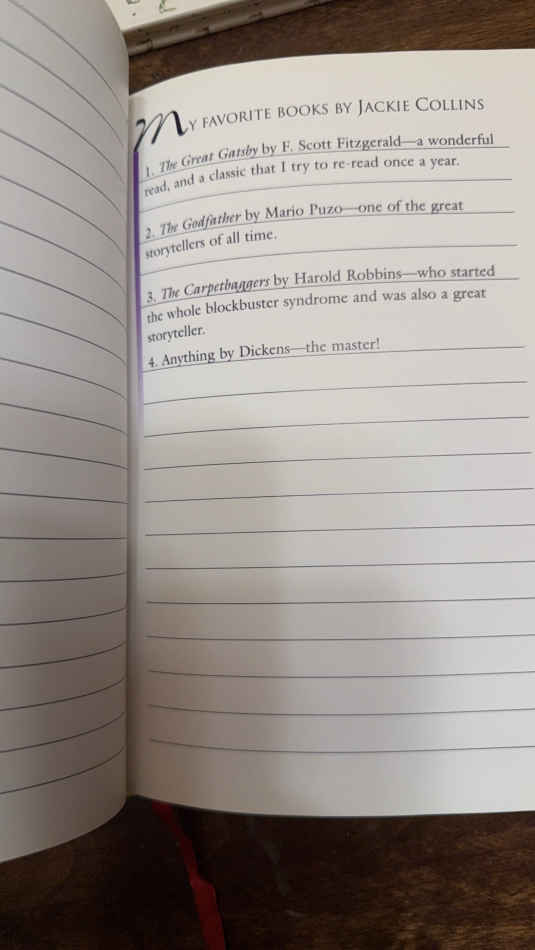 MY FAVORITE BOOKS BY JACKIE COLLINS
1. The Great Gatsby by F. Scott Fitzgerald—a wonderful
read, and a classic that I try to re-read once a year.
2. The Godfather by Mario Puzo—one of the great
storytellers of all time.
3. The Carpetbaggers by Harold Robbins—who started
the whole blockbuster syndrome and was also a great
storyteller.
4. Anything by Dickens—the master!